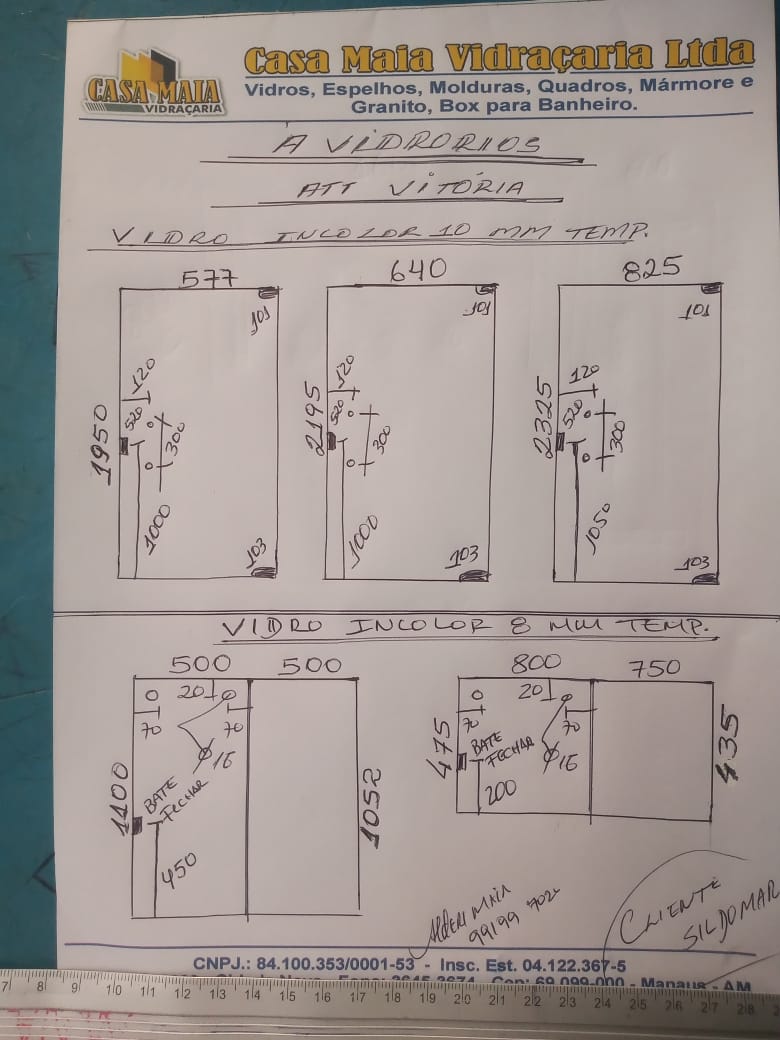 CASA MAIA
VIDRAÇARIA
Casa Maia Vidraçaria Ltda
Vidros, Espelhos, Molduras, Quadros, Mármore e
Granito, Box para Banheiro.
A VIDRORIOS
ATT VITÓRIA
VIDRO INCOLOR 10 MM TEMP.
577
101
120
520
300
1950
1000
103
640
101
120
520
300
2195
1000
103
825
101
120
520
300
2325
1050
103
VIDRO INCOLOR 8 MM TEMP.
500 500
20
70 70
16
BATE
FECHAR
1100
450
1052
800 750
20
70 70
16
BATE
FECHAR
475
200
435
ALDERI MAIA
99199 702
CLIENTE
SILDOMAR
CNPJ.: 84.100.353/0001-53 - Insc. Est. 04.122.367-5
3645-3674 Cep: 69.099-000 - Manaus - AM
7 8 9 10 11 12 13 14 15 16 17 18 19 20 21 22 23 24 25 26 27 28